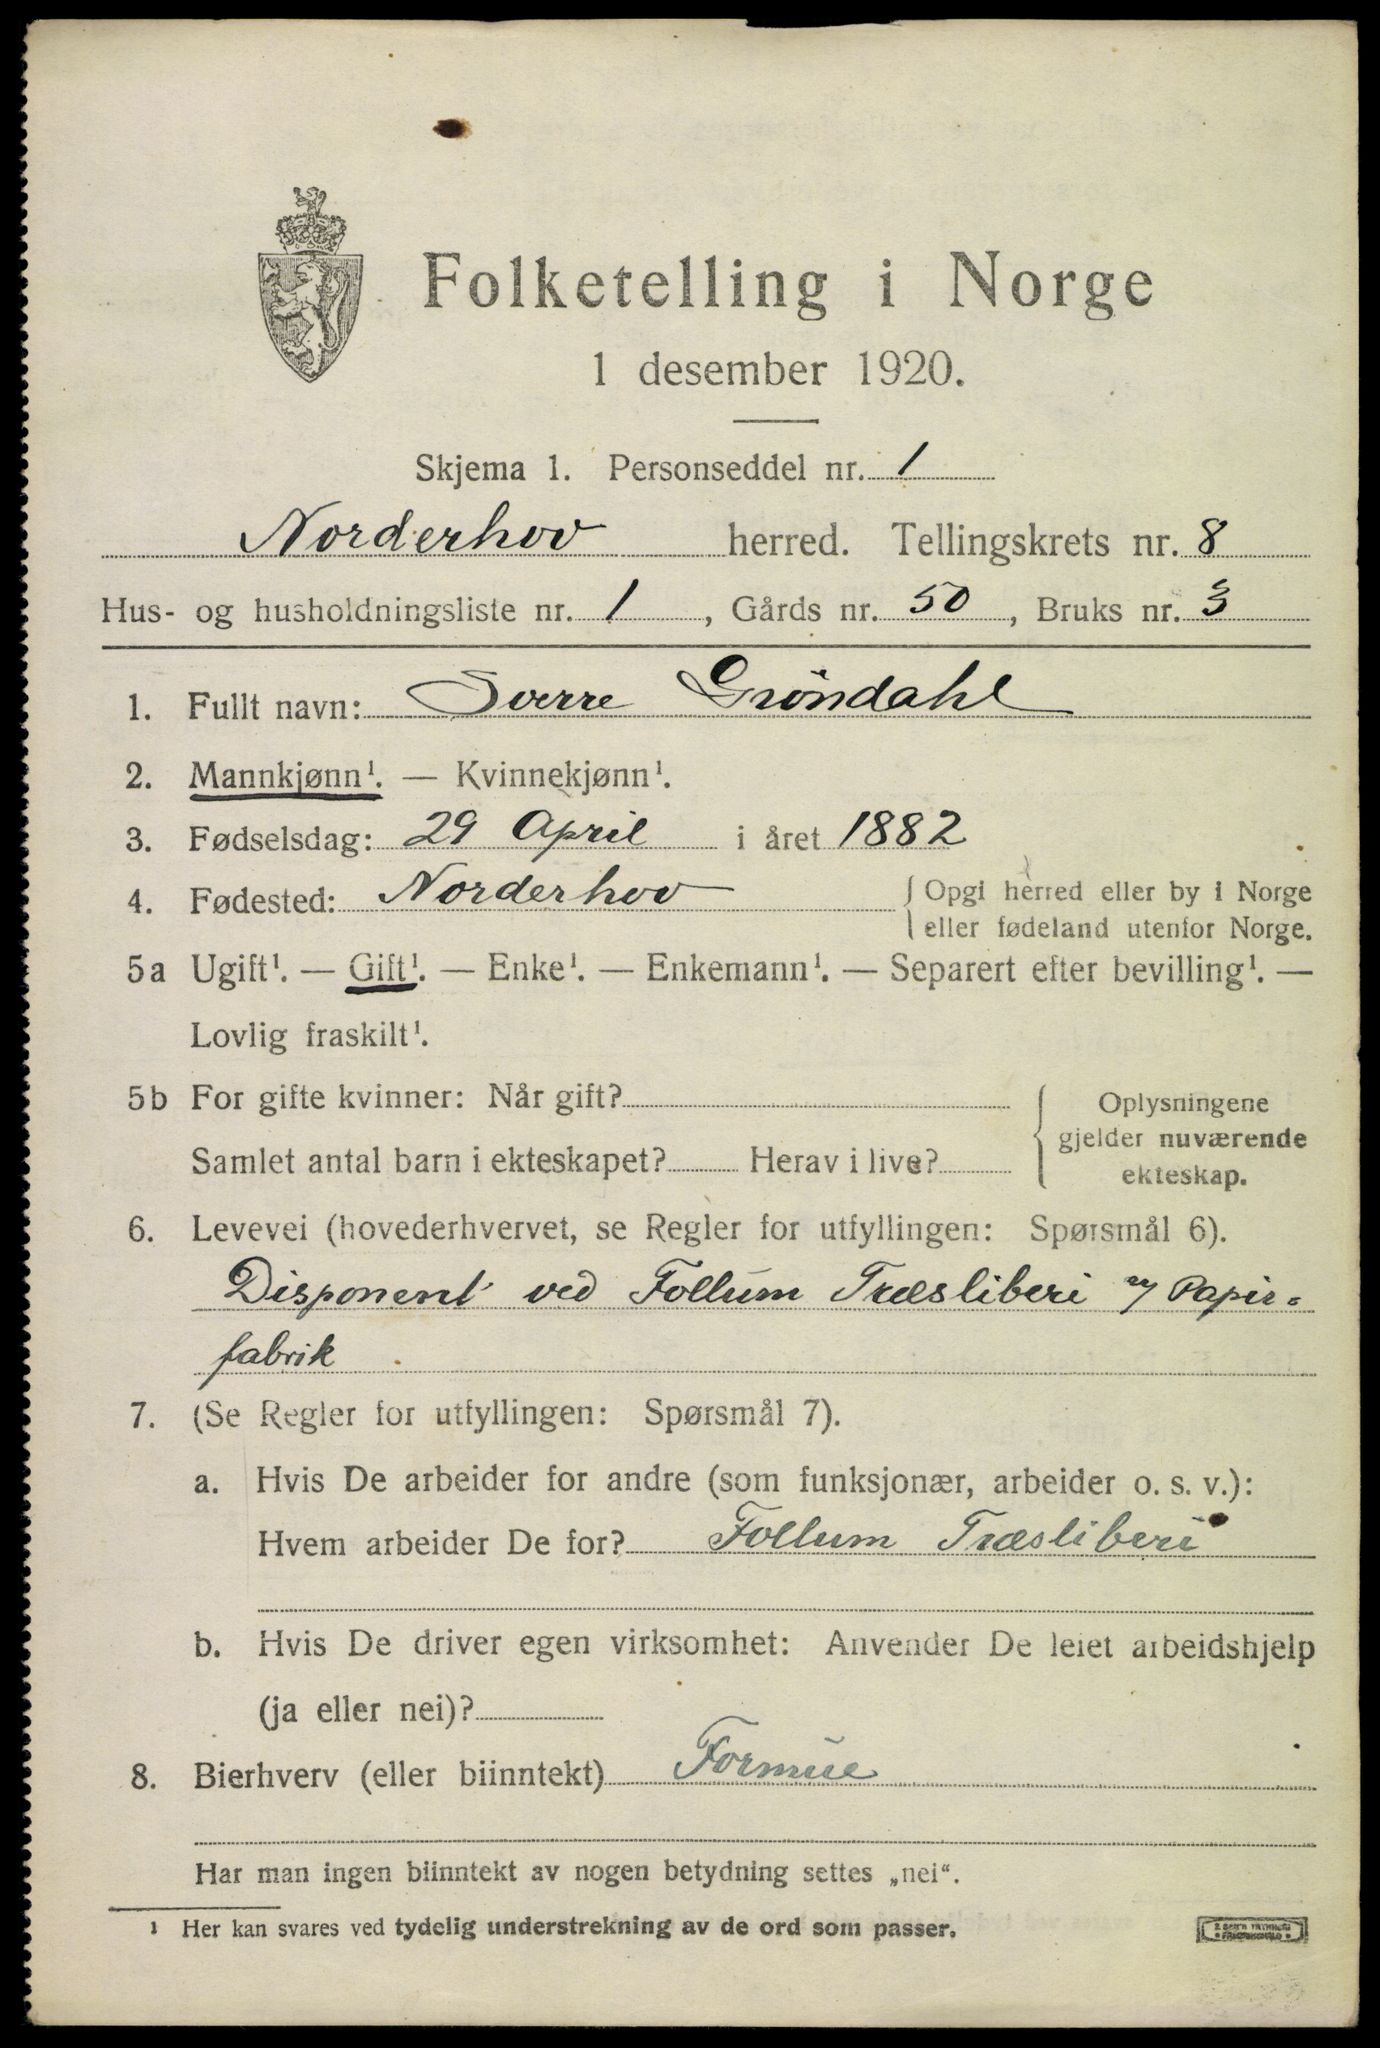 Folketelling i Norge
1 desember 1920.
Skjema 1. Personseddel nr. 1
Norderhov herred. Tellingskrets nr. 8
Hus- og husholdningsliste nr. 1, Gårds nr. 50, Bruks nr. 3
1. Fullt navn: Sverre Gröndahl
2. Mannkjønn¹. — Kvinnekjønn¹.
3. Fødselsdag: 29 April i året 1882
4. Fødested: Norderhov { Opgi herred eller by i Norge
eller fødeland utenfor Norge.
5a Ugift¹. — Gift¹. — Enke¹. — Enkemann¹. — Separert efter bevilling¹. —
Lovlig fraskilt¹.
5b For gifte kvinner: Når gift? { Oplysningene
gjelder nuværende
Samlet antal barn i ekteskapet? Herav i live?
ekteskap.
6. Levevei (hovederhvervet, se Regler for utfyllingen: Spørsmål 6).
Disponent ved Follum Træsliberi og Papir=
fabrik
7. (Se Regler for utfyllingen: Spørsmål 7).
a. Hvis De arbeider for andre (som funksjonær, arbeider o. s. v.):
Hvem arbeider De for? Follum Træsliberi
b. Hvis De driver egen virksomhet: Anvender De leiet arbeidshjelp
(ja eller nei)?
8. Bierhverv (eller biinntekt) Formue
Har man ingen biinntekt av nogen betydning settes „nei“.
¹ Her kan svares ved tydelig understrekning av de ord som passer.